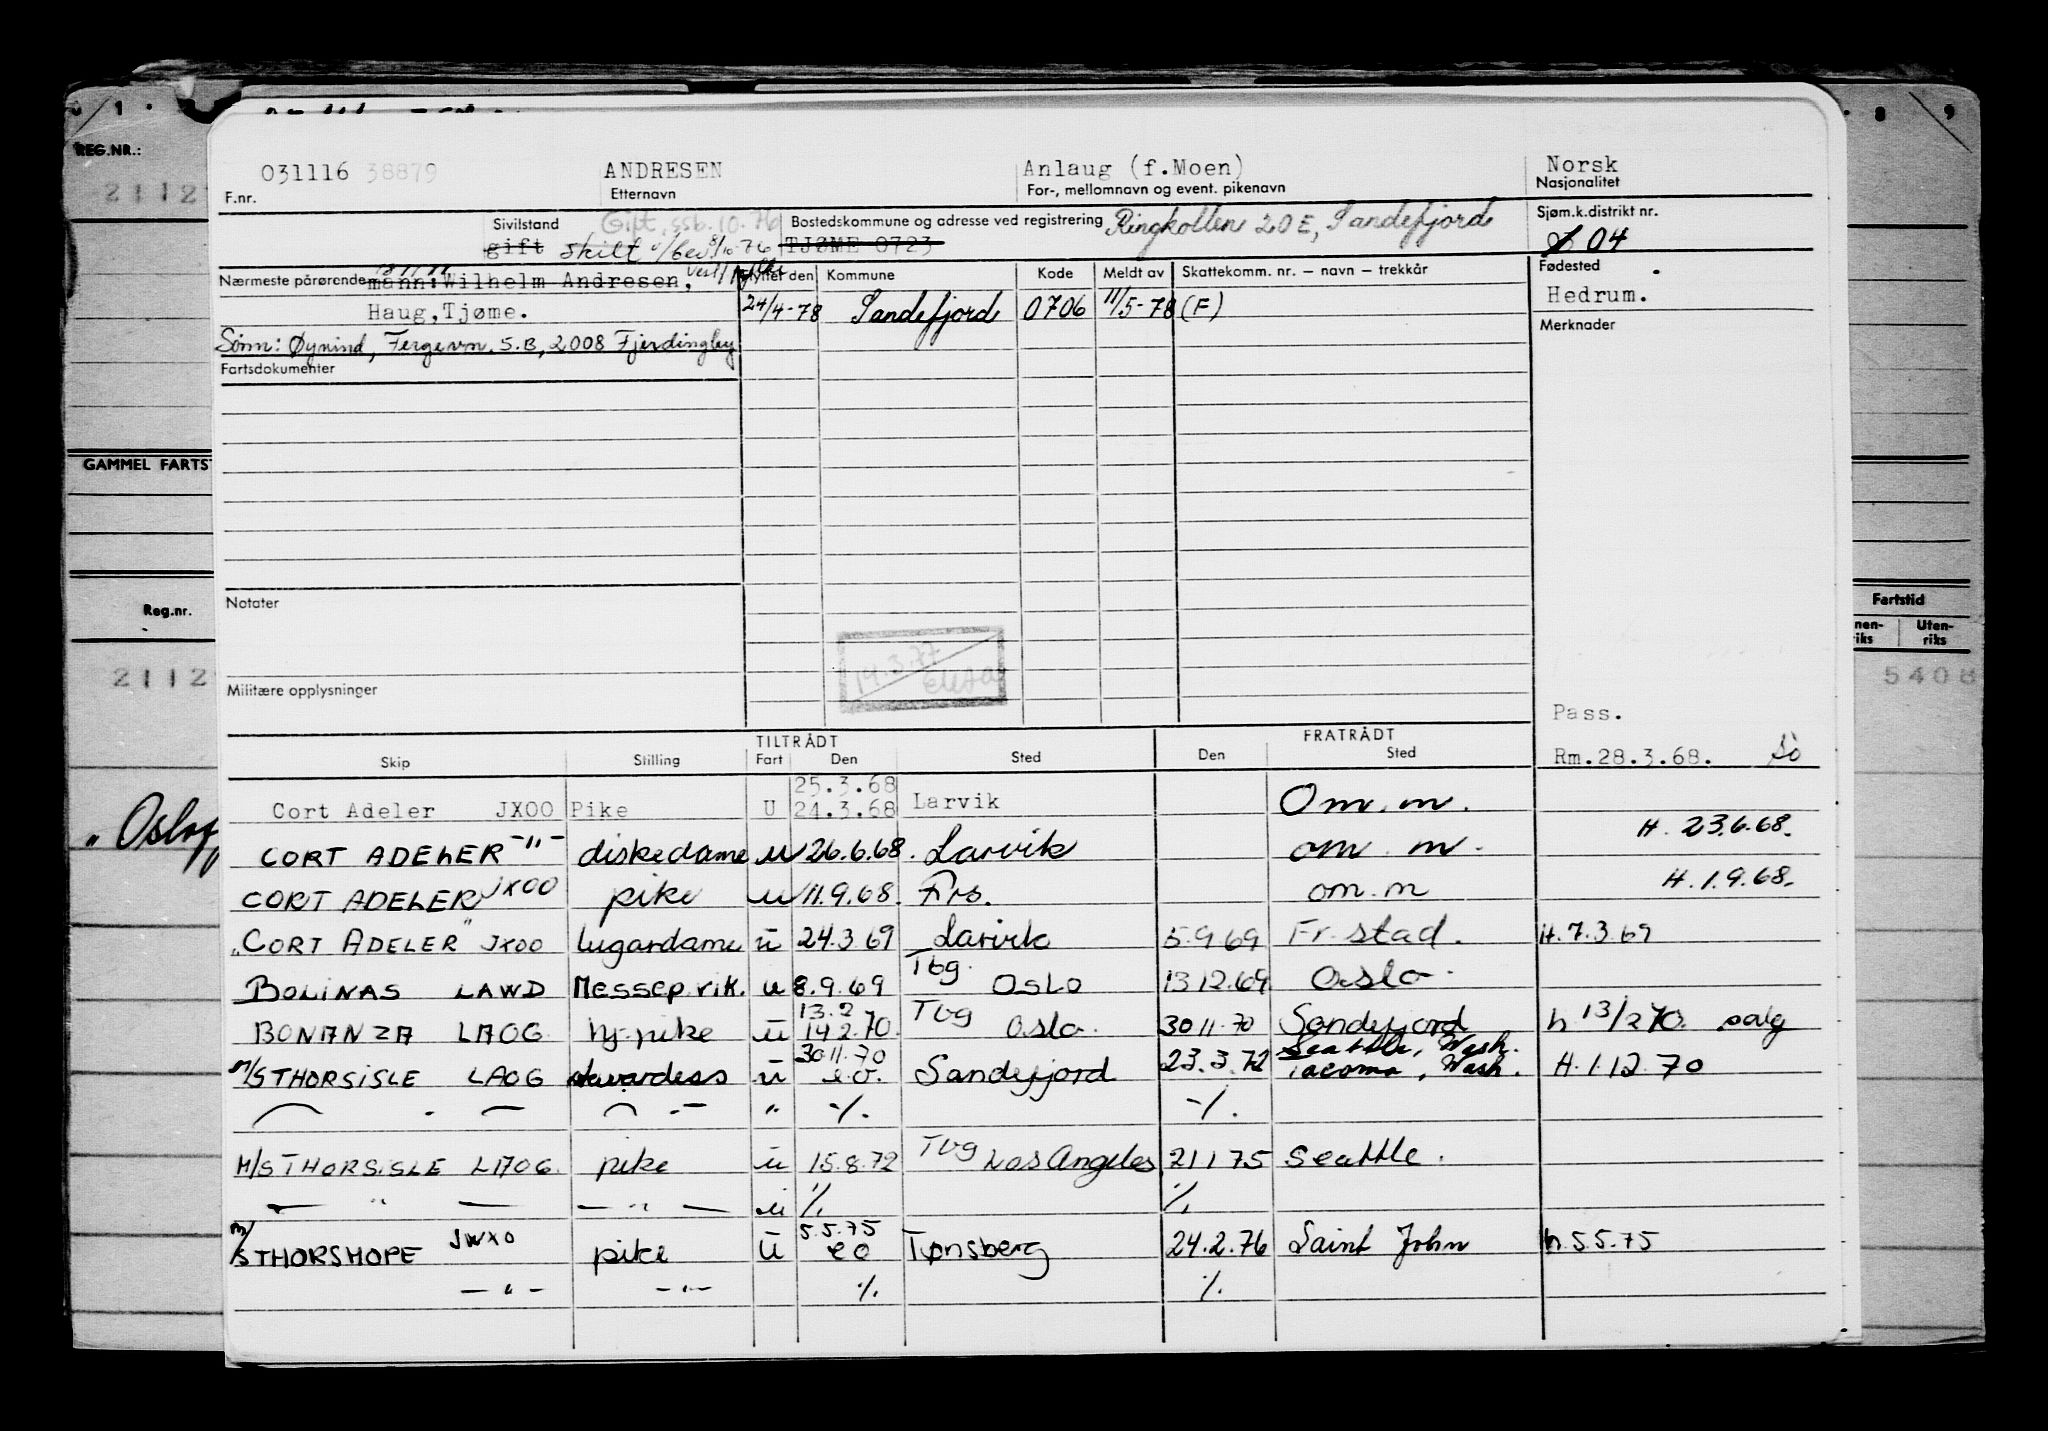 REG.NR.:
GAMMEL FARTS
Reg.nr.
2112
"Oslof
8 9
Fartstid
Uten-
riks
031116 38879 ANDRESEN Anlaug (f.Moen) Norsk
F.nr. Etternavn For-, mellomnavn og event. pikenavn Nasjonalitet
Sivilstand Gift, ssb.10.76 Bostedskommune og adresse ved registrering Ringkollen 20E, Sandefjord Sjøm.k.distrikt nr.
gift skilt TJØME 0723 04
Nærmeste pårørende mann: Wilhelm Andresen, Flyttet den Kommune Kode Meldt av Skattekomm. nr. – navn – trekkår Fødested
Haug, Tjøme. 24/4-78 Sandefjord 0706 11/5-78 (F) Hedrum.
Sønn: Øyvind, Fergevn. 5.B, 2008 Fjerdingby Merknader
Fartsdokumenter
Notater
14.3.77
Militære opplysninger
Pass.
TILTRÅDT FRATRÅDT
Skip Stilling Fart Den Sted Den Sted Rm.28.3.68. Sö
25.3.68
Cort Adeler JXOO Pike U 24.3.68 Larvik Om.m.
H. 23.6.68.
CORT ADELER -"- diskedame u 26.6.68. Larvik om. m.
CORT ADELER JXOO pike u 11.9.68. Frs. om.m H.1.9.68.
"CORT ADELER" JXOO lugardame u 24.3 69 Larvik 5.9 69 Fr. stad. H.7.3.69
BOLINAS LAWD Messep.vik. u 8.9.69 Tbg. OSLO 13 12.69 Oslo.
13.2
BONANZA LAOG hj.pike u 14 2.70. Tbg Oslo. 30 11.70 Sandefjord h 13/2 70. salg
30 11.70 Seattle, Wash.
M/S THORSISLE LAOG stuvardess u e.o. Sandefjord 23.3.72 Tacoma, Wash. H.1.12.70
— " — — " — " ./. ./.
M/S THORSISLE LAOG. pike u 15.8.72 Tbg Los Angeles 21 1 75 Seattle.
— " — — " — u ./. ./.
5.5.75
M/S THORSHOPE JWXO pike u eo Tønsberg 24.2.76 Saint John h.5.5.75
— " — — " — ./. ./.